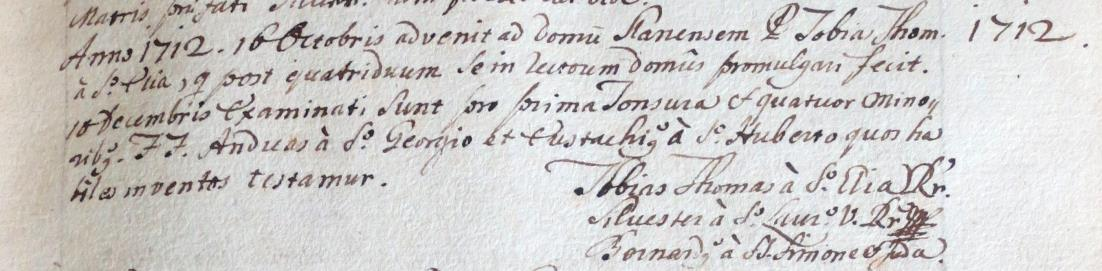 Matris
Anno 1712. 16 Octobris advenit ad domū Slanensem P Tobias Thom. 1712.
à So Elia, q post quatriduum se in rectorum domûs promulgari fecit.
16 Decembris Examinati sunt pro prima Tonsura & quatuor Mino,,
ribq. F F. Andreas à So Georgio et Eustachiq à So Huberto quos ha
biles inventos testamur.
Tobias Thomas à So Elia Rr.
Silvester à So Laur. V. Rr
Bernardq à SS. Simone & Juda.